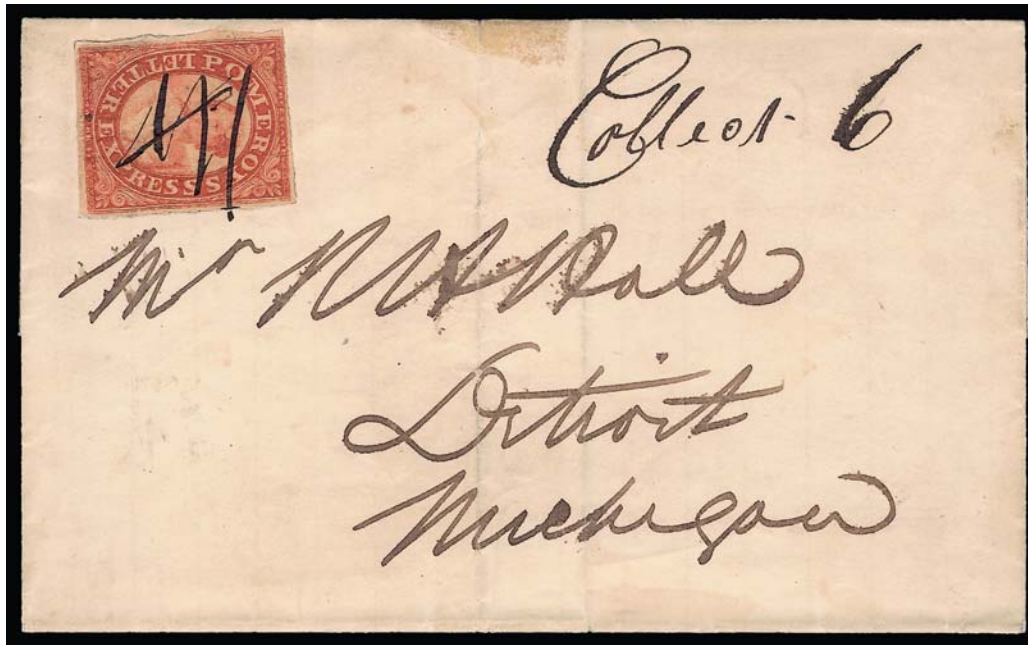 POMEROY'S LETTER EXPRESS
Collect 6
Mr R H Hall
Detroit
Michigan